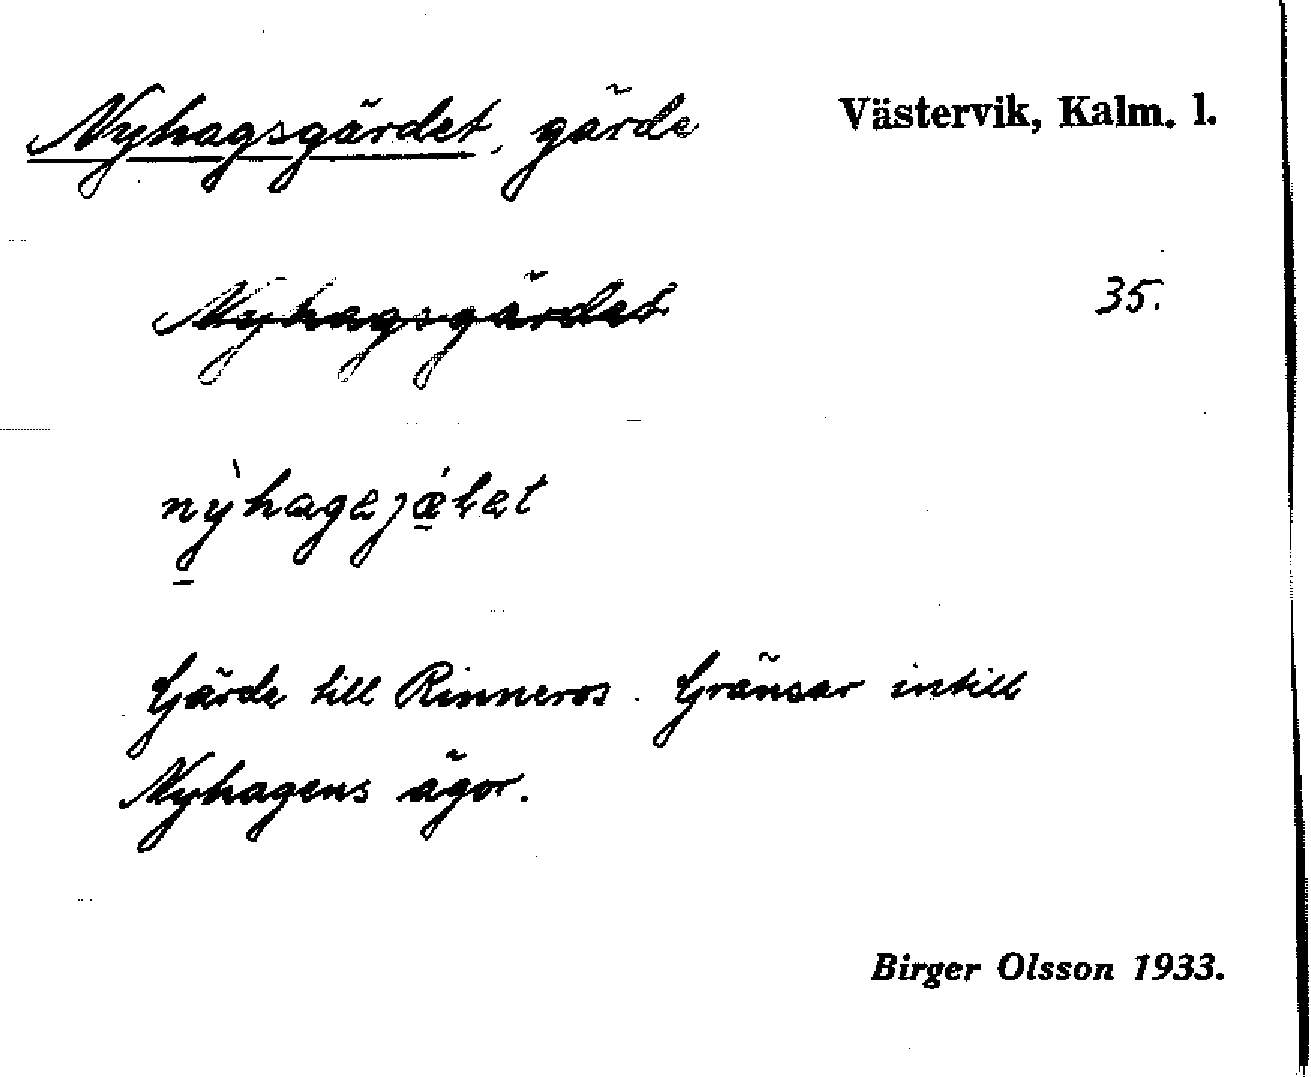 Nyhagsgärdet, gärde Västervik, Kalm. l.
Nyhagsgärdet 35.
Gärde till Rinneros. Gränsar intill
Nyhagens ägor.
Birger Olsson 1933.